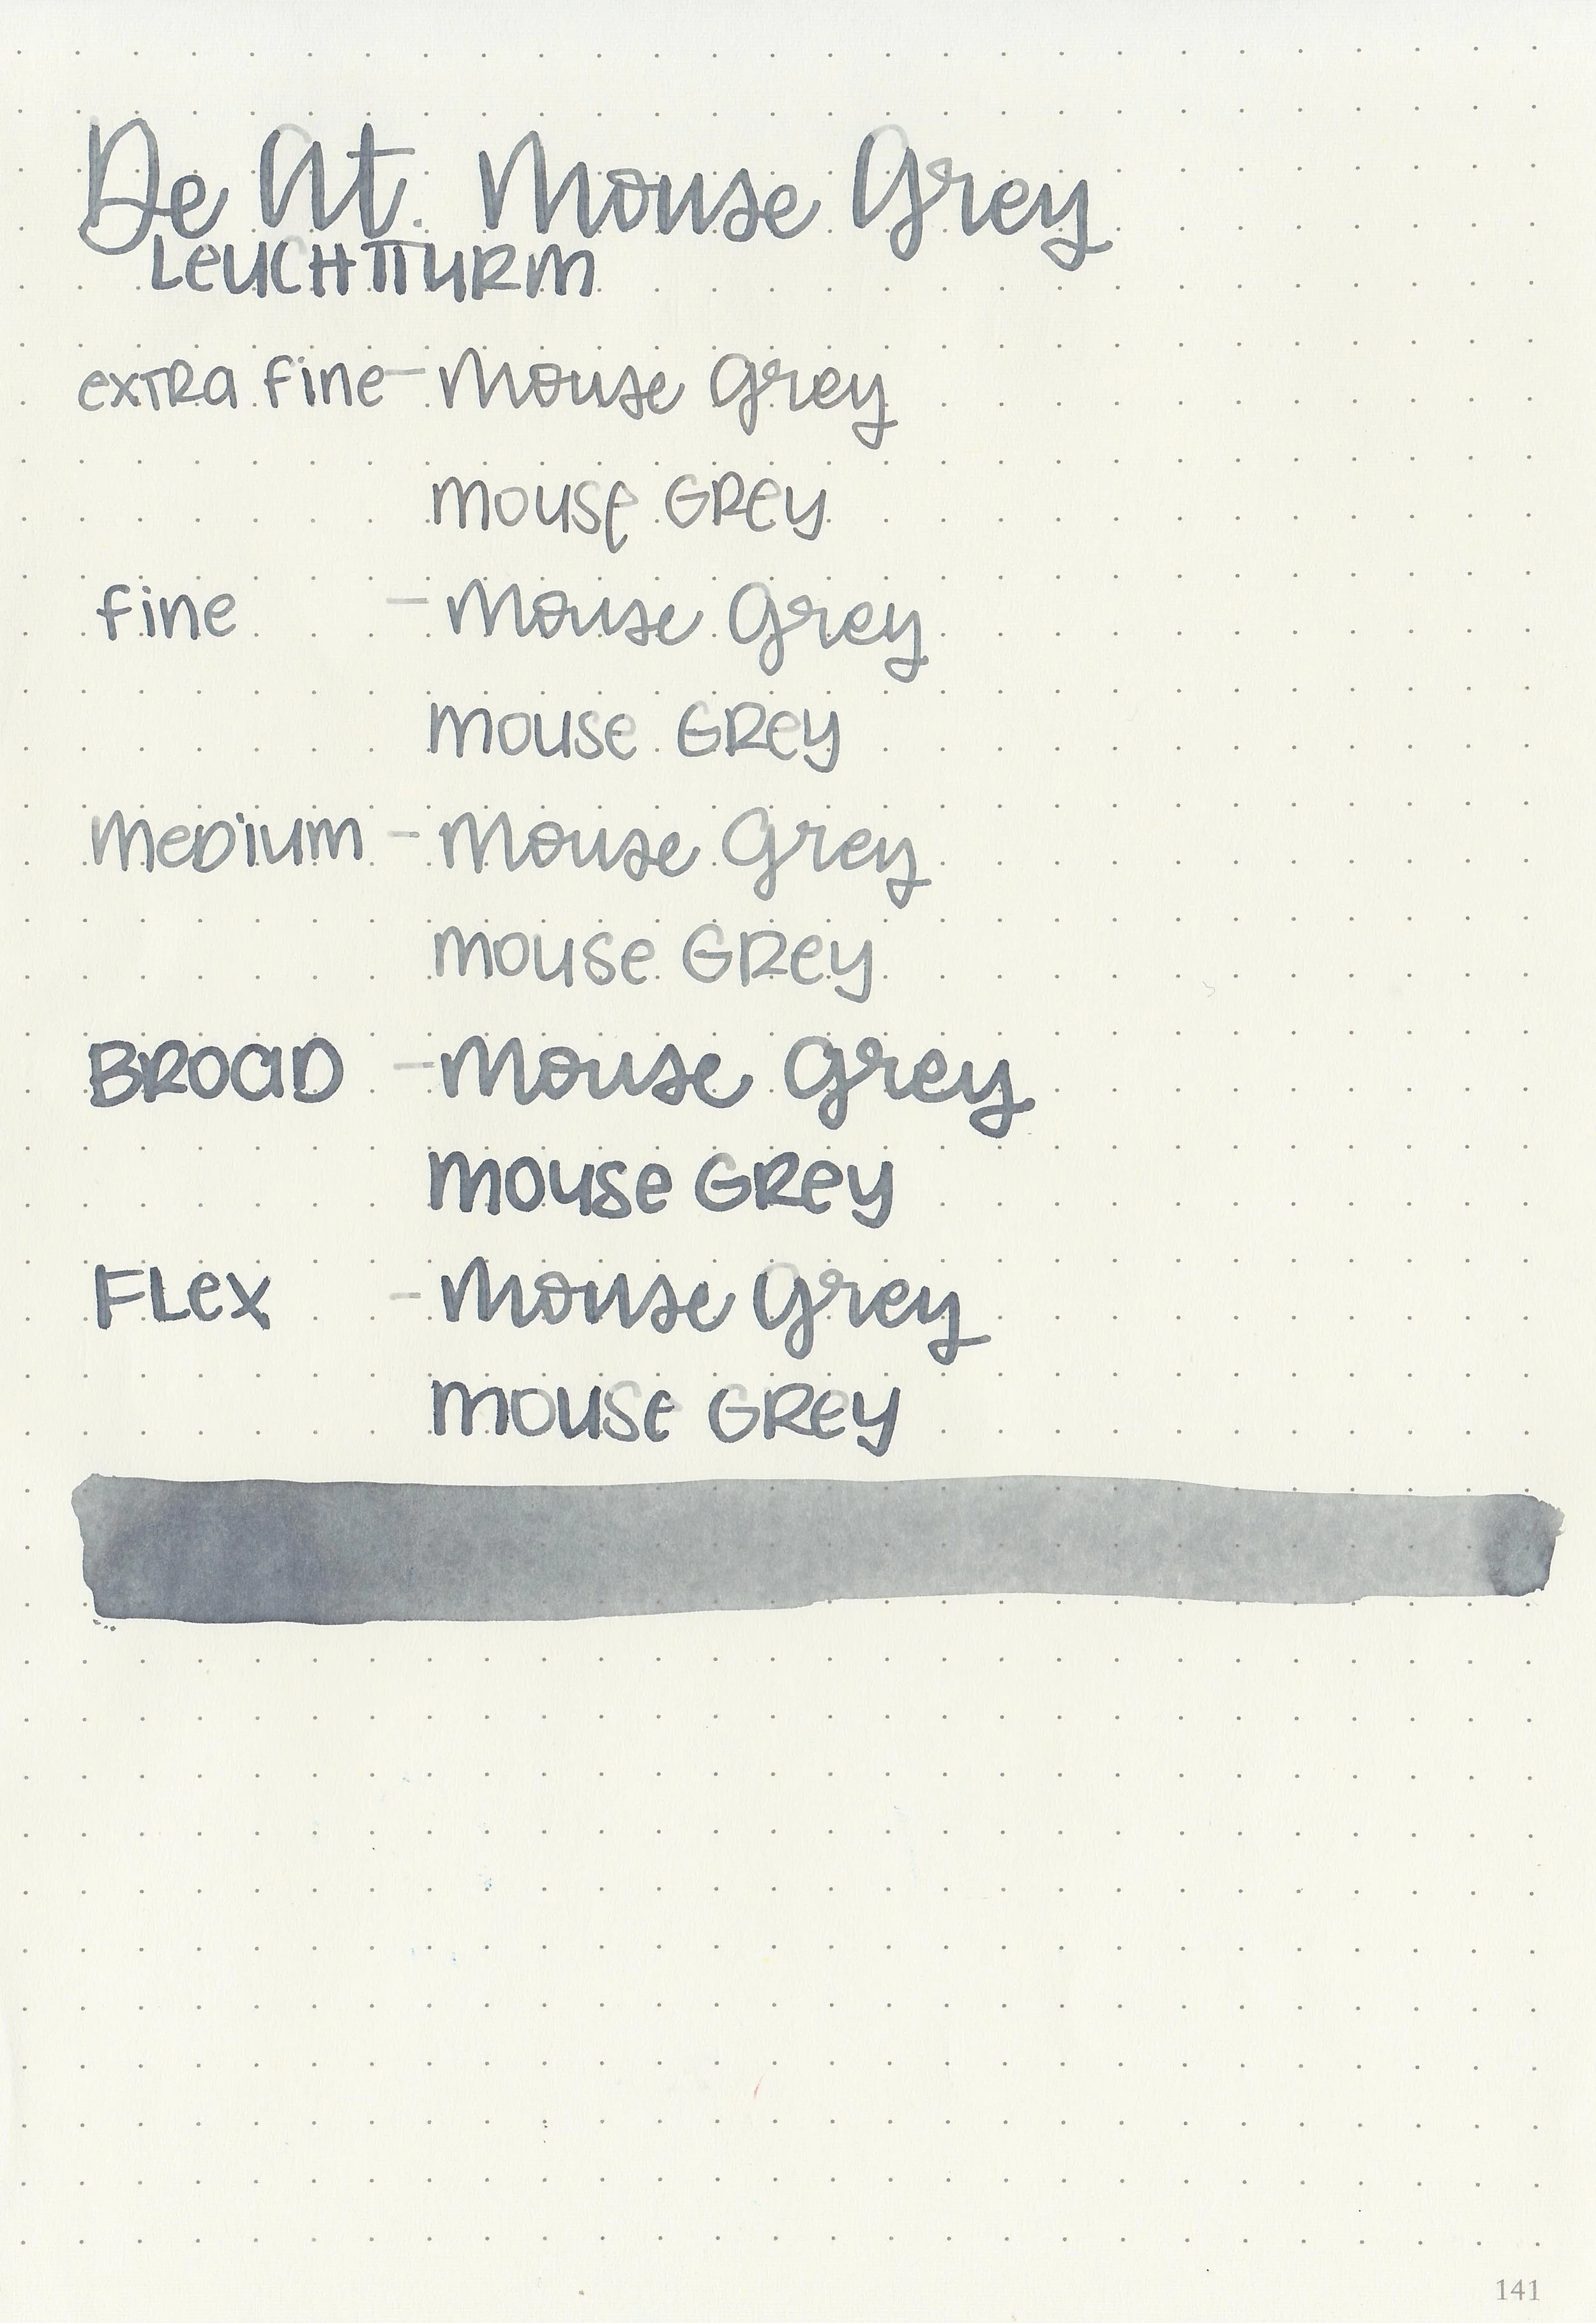 De At. Mouse Grey
LeuchTTurm
exTRa fine - Mouse Grey
mouse GRey
fine - Mouse Grey
mouse GRey
MeDium - Mouse Grey
mouse GRey
BROaD - Mouse Grey
mouse GRey
FLex - Mouse Grey
mouse GRey
141